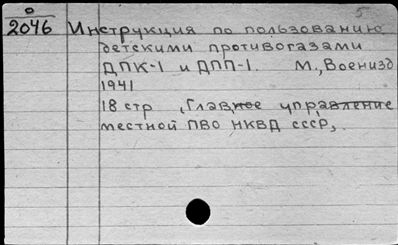 5
0
2046 Инструкция по пользованию
детскими противогазами
ДПК-1 и ДПП-1. М., Воениzд
1941
18 стр , Главное управление
местной ПВО НКВД СССР,.